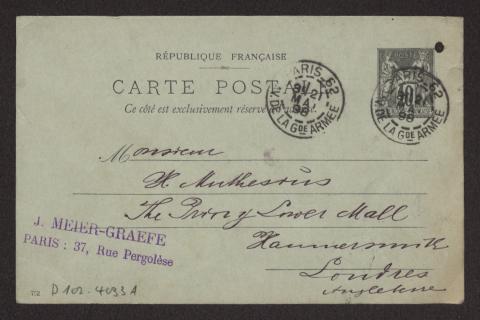 RÉPUBLIQUE FRANÇAISE
CARTE POSTALE
Ce côté est exclusivement réservé
PARIS_62
AV. DE LA Gde ARMÉE
21
98
PARIS_62
AV. DE LA Gde ARMÉE
21
98
POSTES
10
Monsieur
H. Muthesius
The Priory Lower Mall
Hammersmith
Londres
Angleterre
J. MEIER-GRAEFE
PARIS : 37, Rue Pergolèse
D 102-4093 A